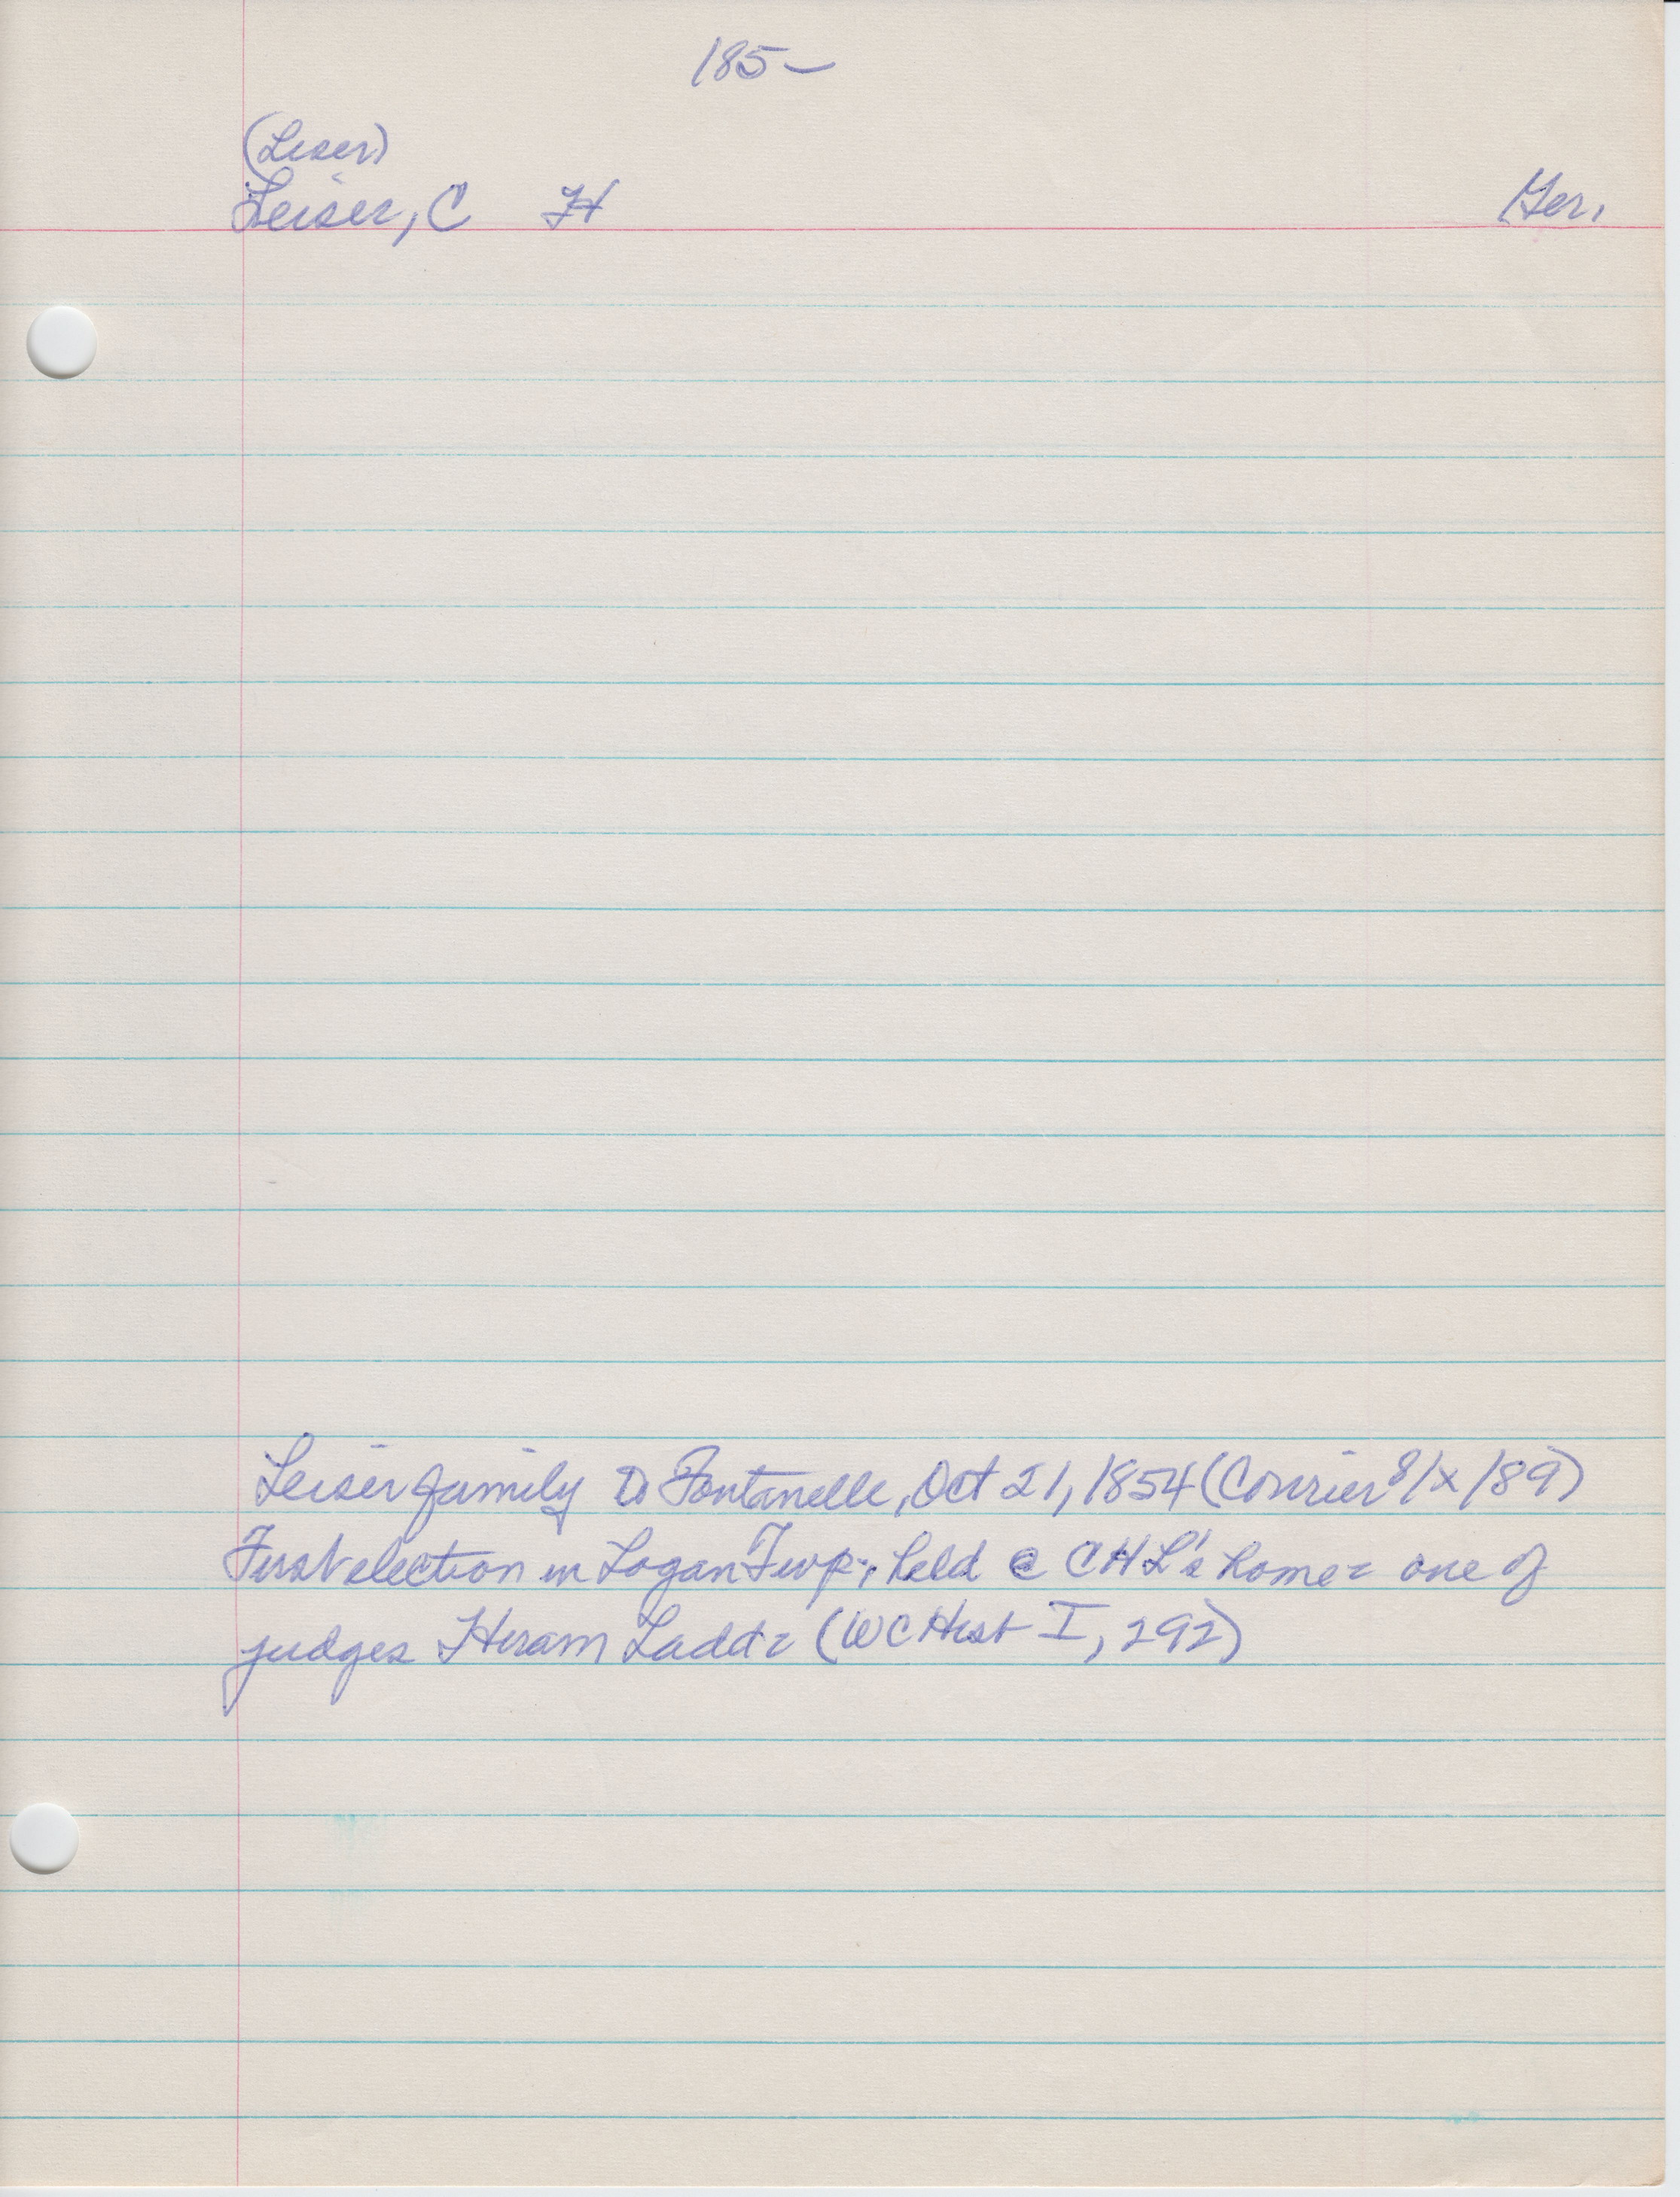 185–
(Leser)
Leiser, C H
Ger.
Leiser family to Fontanelle, Oct 21, 1854 (Courier 8/x/89)
First election in Logan Twp; held @ CHL's home = one of
judges Hiram Ladd = (WC Hist I, 292)